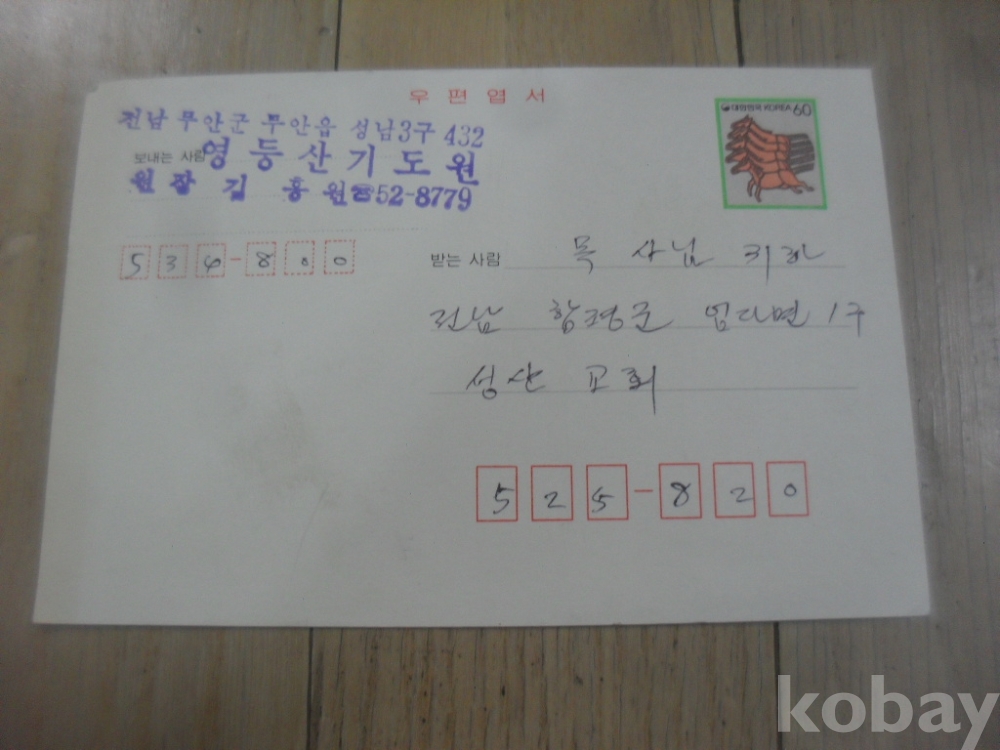 우편엽서
대한민국 KOREA 60
전남 무안군 무안읍 성남3구 432
보내는 사람
영등산기도원
원장 김홍원☎52-8779
534-800
받는 사람 목사님 귀하
전남 함평군 엄다면 1구
성산 교회
525-820
kobay